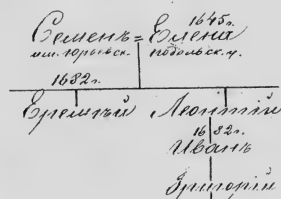 1645г.
Семенъ = Елена
им. Юрьевск. подольск. у.
1682г.
Еремѣй Леонтій
1682г.
Иванъ
Григорій